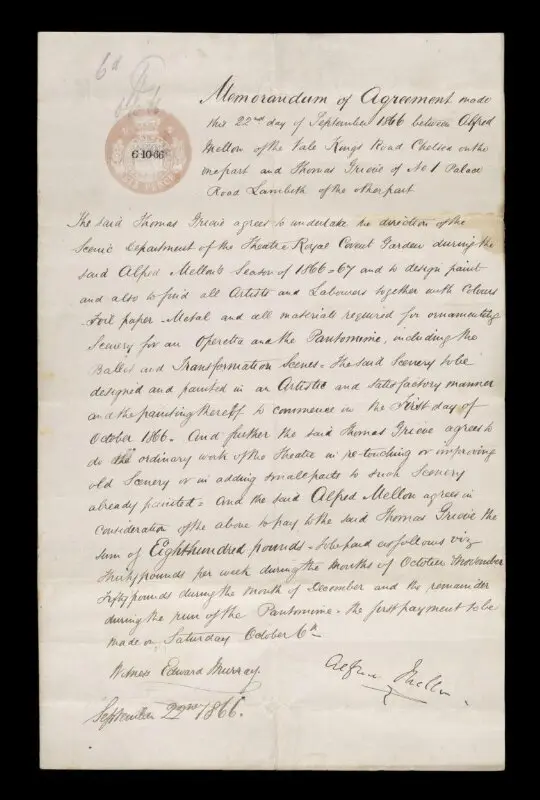 6d
6·10·66
Memorandum of Agreement made
this 22nd day of September 1866 between Alfred
Mellon of the Vale Kings Road Chelsea on the
one part and Thomas Grieve of No 1 Palace
Road Lambeth of the other part
The said Thomas Grieve agrees to undertake the direction of the
Scenic Department of the Theatre Royal Covent Garden during the
said Alfred Mellon's Season of 1866-67 and to design paint
and also to find all Artists and Labourers together with Colours
Foil paper Metal and all materials required for ornamenting
Scenery for an Operetta and the Pantomime, including the
Ballet and Transformation Scenes. The said Scenery to be
designed and painted in an Artistic and satisfactory manner
and the painting thereof to commence in the First day of
October 1866. And further the said Thomas Grieve agrees to
do the ordinary work of the Theatre in re-touching or improving
old Scenery or in adding small parts to such Scenery
already painted = And the said Alfred Mellon agrees in
consideration of the above to pay to the said Thomas Grieve the
sum of Eighthundred pounds - to be paid as follows viz
Thirty pounds per week during the months of October & November
Fifty pounds during the month of December and the remainder
during the run of the Pantomime. the first payment to be
made on Saturday October 6th
Witness Edward Murray.
Alfred Mellon
September 22nd 1866.